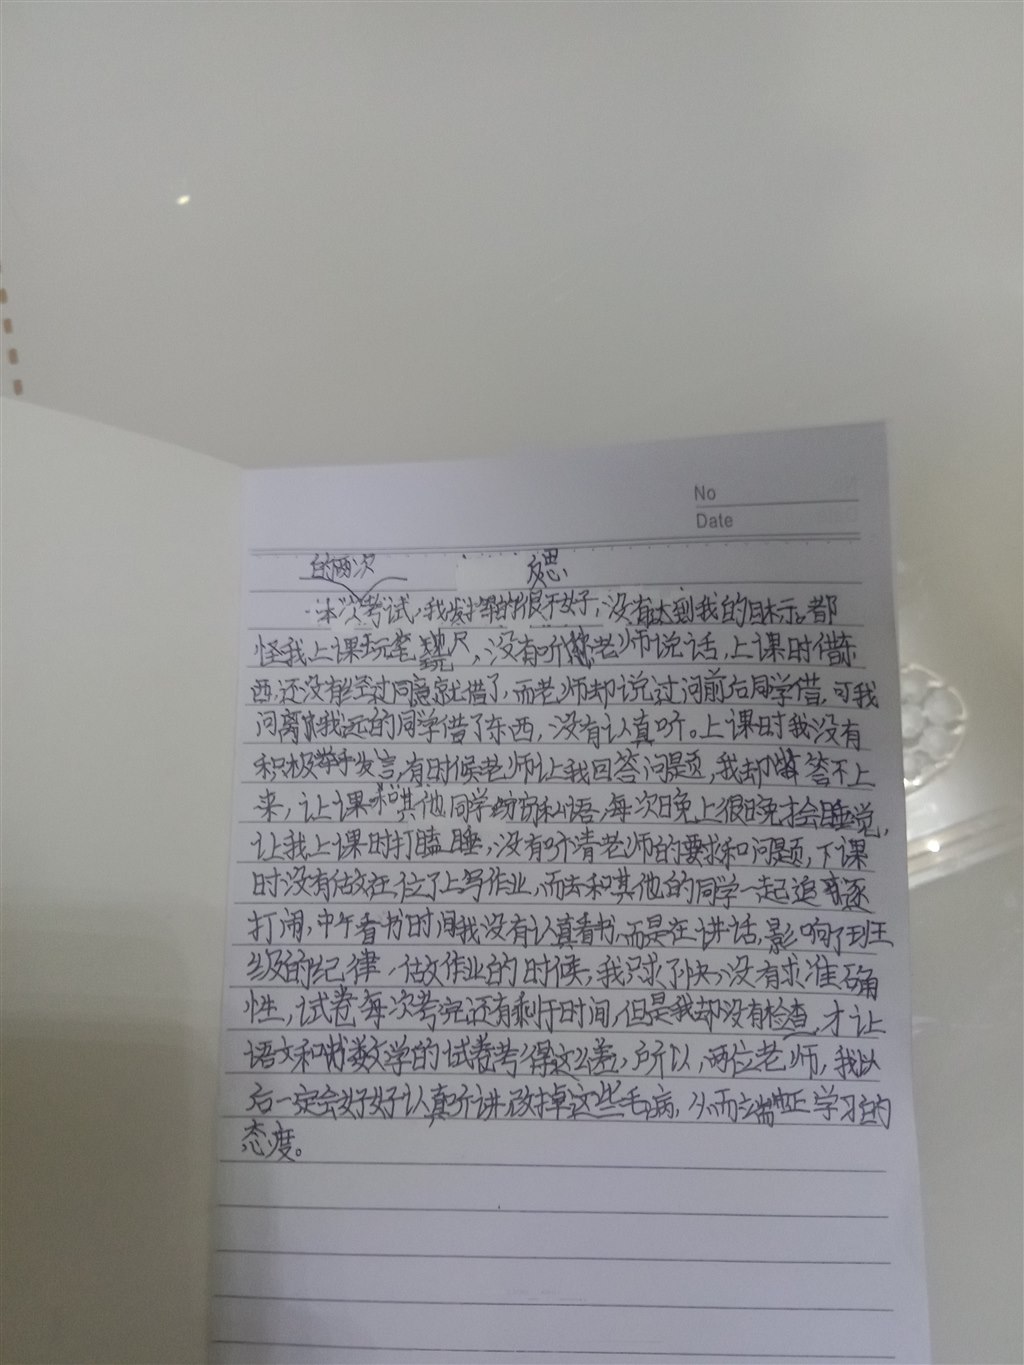 No
Date
的两次 反思
本次考试,我发挥的很不好,没有达到我的目标。都
怪我上课玩笔玩尺,没有听老师说话,上课时借东
西,还没有经过同意就借了,而老师却说过问前后同学借,可我
问离我远的同学借了东西,没有认真听。上课时我没有
积极举手发言,有时候老师让我回答问题,我却答不上
来,让课和其他同学窃窃私语,每次晚上很晚才会睡觉,
让我上课时打瞌睡,没有听清老师的要求和问题,下课
时没有做在位子上写作业,而去和其他的同学一起追逐
打闹,中午看书时间我没有认真看书,而是在讲话,影响了班
级的纪律,做作业的时候,我只求了快,没有求准确
性,试卷每次考完还有剩于时间,但是我却没有检查,才让
语文和数学的试卷考得这么差,所以,两位老师,我以
后一定会好好认真听讲,改掉这些毛病,从而端正学习的
态度。